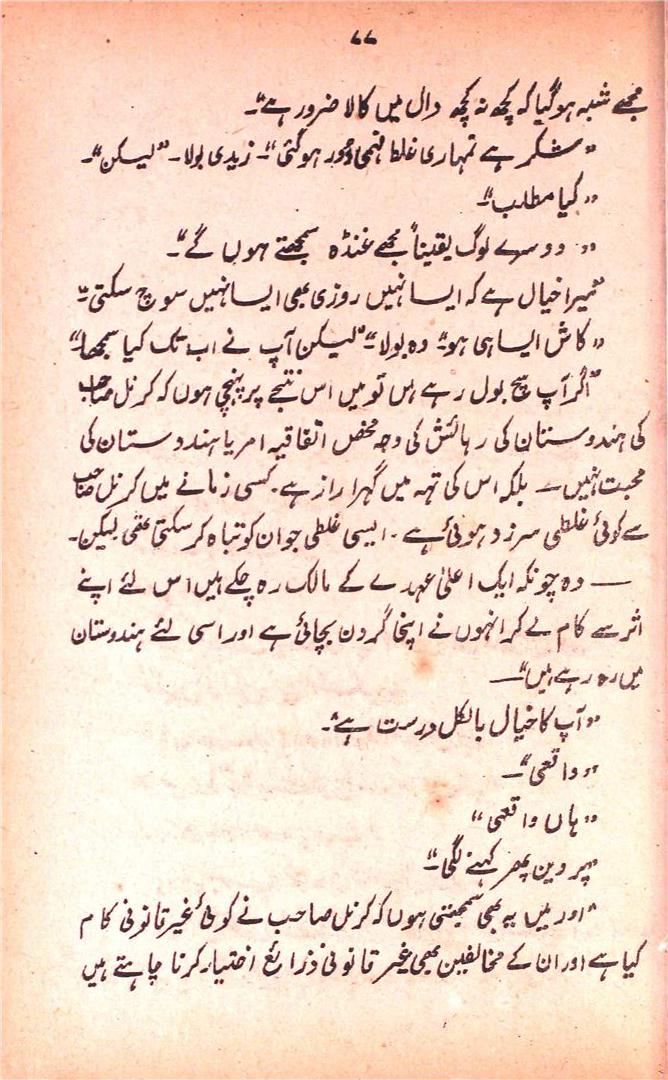 ۷۷
مجھے شبہ ہوگیا کہ کچھ نہ کچھ دال میں کالا ضرور ہے"۔
"شکر ہے تمہاری غلط فہمی دور ہوگئی"۔ زیدی بولا۔ "لیکن"۔
"کیا مطلب"۔
"دوسرے لوگ یقیناً مجھے غنڈہ سمجھتے ہوں گے"۔
"میرا خیال ہے کہ ایسا نہیں روزی بھی ایسا نہیں سوچ سکتی"۔
"کاش ایسا ہی ہو" وہ بولا "۔ "لیکن آپ نے اب تک کیا سمجھا"
"اگر آپ سچ بول رہے ہیں تو میں اس نتیجے پر پہنچی ہوں کہ کرنل صاحب
کی ہندوستان کی رہائش کی وجہ محض اتفاقیہ امر یا ہندوستان کی
محبت نہیں — بلکہ اس کی تہہ میں گہرا راز ہے۔ کسی زمانے میں کرنل صاحب
سے کوئی غلطی سرزد ہوئی ہے۔ ایسی غلطی جو ان کو تباہ کر سکتی تھی لیکن۔
— وہ چونکہ ایک اعلیٰ عہدے کے مالک رہ چکے ہیں اس لئے اپنے
اثر سے کام لے کر انہوں نے اپنی گردن بچائی ہے اور اسی لئے ہندوستان
میں رہ رہے ہیں"—
"آپ کا خیال بالکل درست ہے"۔
"واقعی"—
"ہاں واقعی"
"پروین پھر کہنے لگی"۔
"اور میں یہ بھی سمجھتی ہوں کہ کرنل صاحب نے کوئی غیر قانونی کام
کیا ہے اور ان کے مخالفین بھی غیر قانونی ذرائع اختیار کرنا چاہتے ہیں